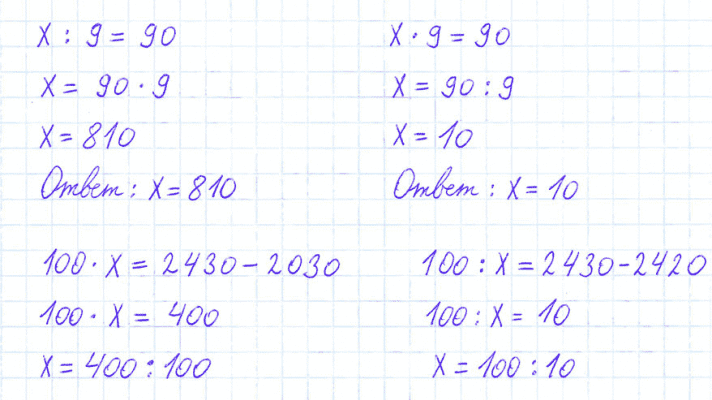 x : 9 = 90
x = 90 · 9
x = 810
Ответ : x = 810
x · 9 = 90
x = 90 : 9
x = 10
Ответ : x = 10
100 · x = 2430 - 2030
100 · x = 400
x = 400 : 100
100 : x = 2430 - 2420
100 : x = 10
x = 100 : 10